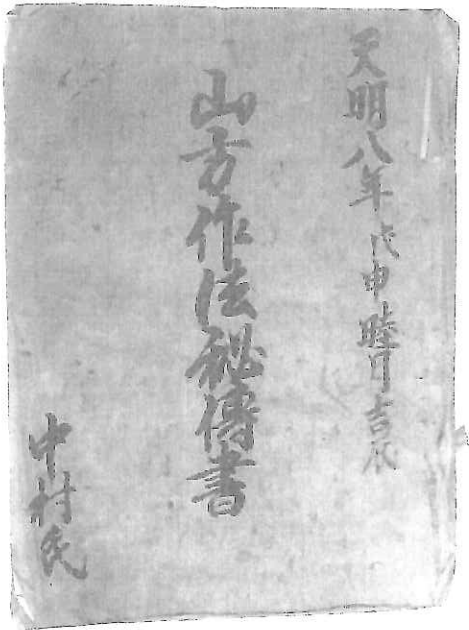 天明八年戊申睦月吉辰
山方作法秘傳書
中村氏